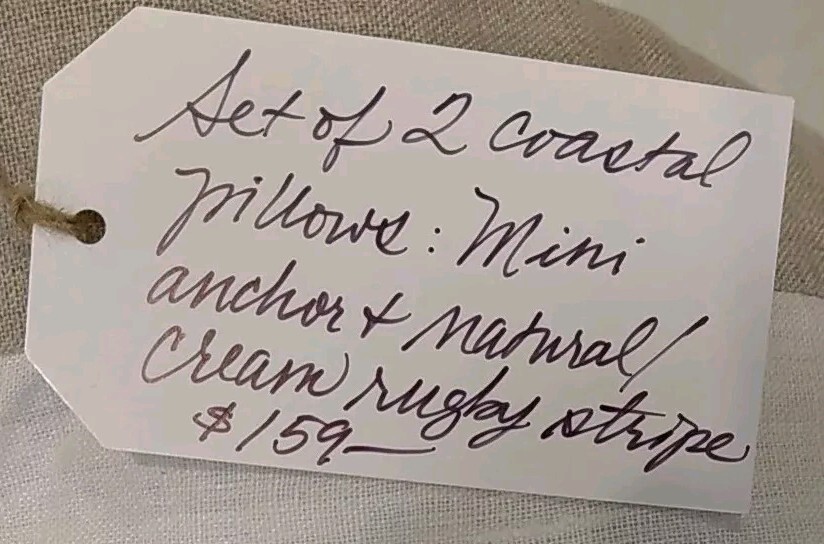 Set of 2 coastal
pillows: Mini
anchor + natural/
cream rugby stripe
$159—